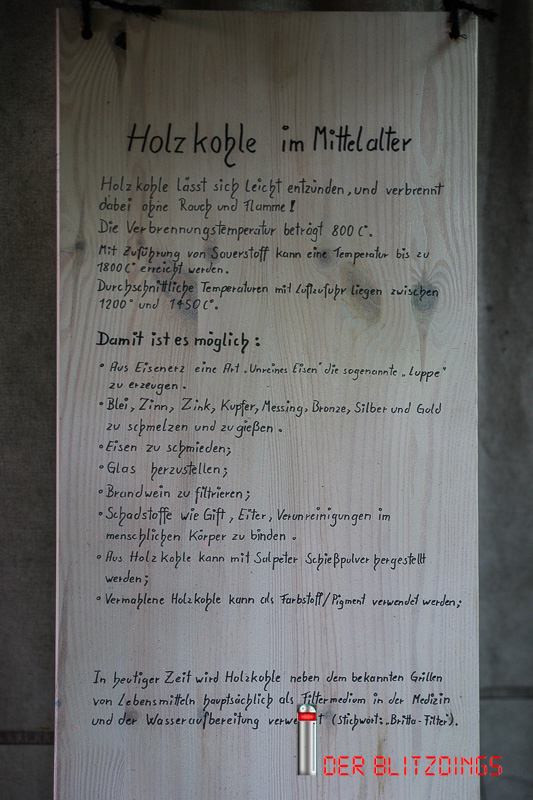 Holzkohle im Mittelalter
Holzkohle lässt sich leicht entzünden, und verbrennt
dabei ohne Rauch und Flamme!
Die Verbrennungstemperatur beträgt 800 C°.
Mit Zuführung von Sauerstoff kann eine Temperatur bis zu
1800 C° erreicht werden.
Durchschnittliche Temperaturen mit Luftzufuhr liegen zwischen
1200° und 1450 C°.
Damit ist es möglich:
° Aus Eisenerz eine Art „Unreines Eisen" die sogenannte „Luppe"
zu erzeugen.
° Blei, Zinn, Zink, Kupfer, Messing, Bronze, Silber und Gold
zu schmelzen und zu gießen.
° Eisen zu schmieden;
° Glas herzustellen;
° Brandwein zu filtrieren;
° Schadstoffe wie Gift, Eiter, Verunreinigungen im
menschlichen Körper zu binden.
° Aus Holzkohle kann mit Salpeter Schießpulver hergestellt
werden;
° Vermahlene Holzkohle kann als Farbstoff/Pigment verwendet werden;
In heutiger Zeit wird Holzkohle neben dem bekannten Grillen
von Lebensmitteln hauptsächlich als Filtermedium in der Medizin
und der Wasseraufbereitung (Stichwort: „Britta-Filter").
DER BLITZDINGS